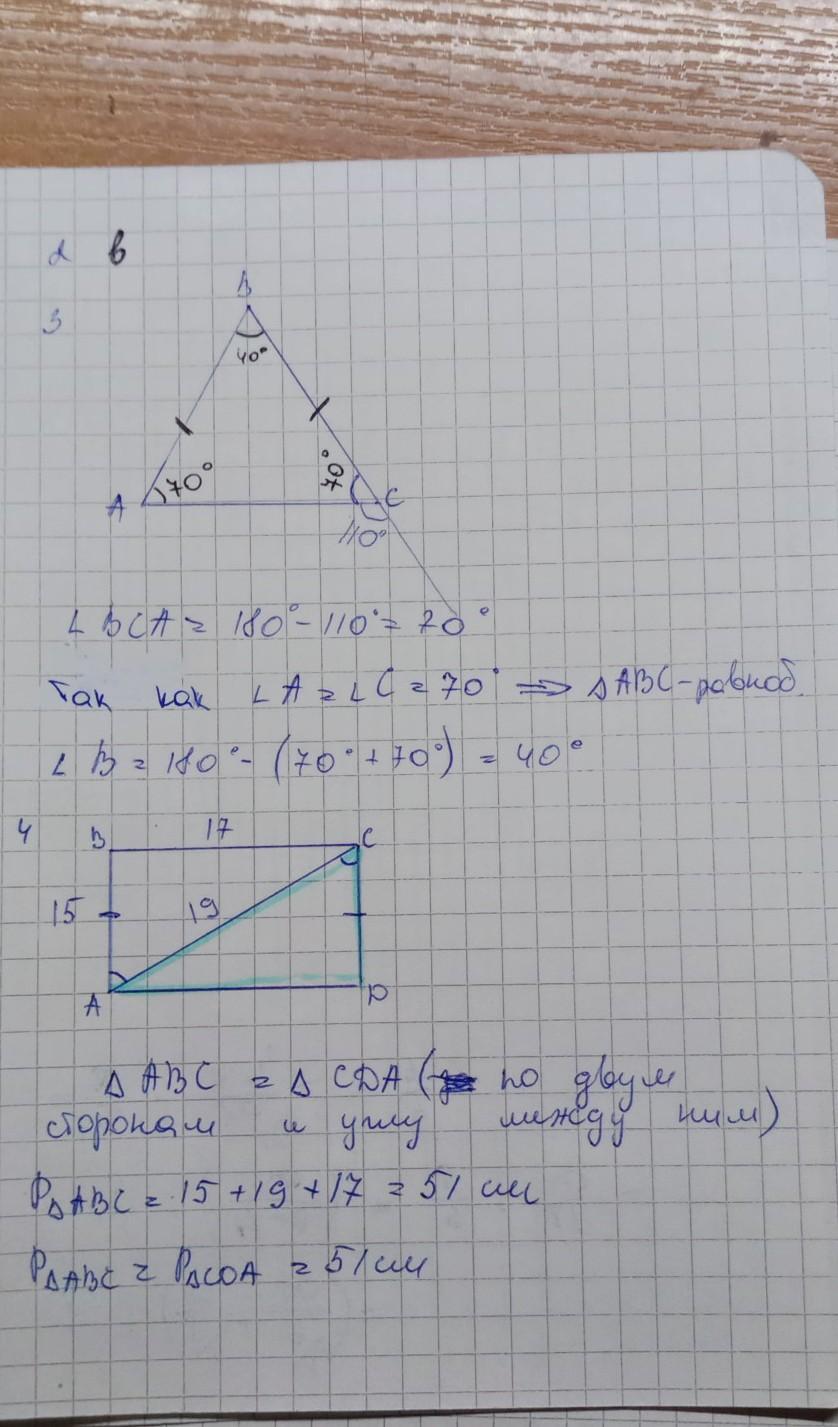 2 в
3
B
40°
70°
70°
A
C
110°
∠BCA = 180° - 110° = 70°
Так как ∠A = ∠C = 70° ⟹ △ABC - равноб.
∠B = 180° - (70° + 70°) = 40°
4
B 17 C
15
19
A
D
△ABC = △CDA ( по двум
сторонам и углу между ним)
P△ABC = 15 + 19 + 17 = 51 см
P△ABC = P△CDA = 51 см